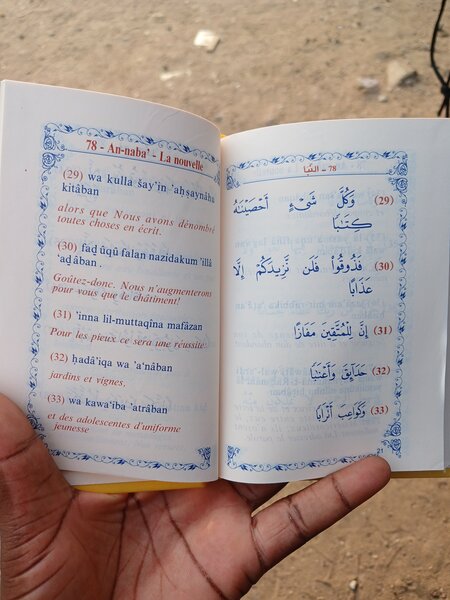 78 - An-naba' - La nouvelle
(29) wa kulla šay'in 'aḥṣaynāhu
kitāban
alors que Nous avons dénombré
toutes choses en écrit.
(30) faḏūqū falan nazīdakum 'illā
'aḏāban .
Goûtez-donc. Nous n'augmenterons
pour vous que le châtiment!
(31) 'inna lil-muttaqīna mafāzan
Pour les pieux ce sera une réussite:
(32) ḥadā'iqa wa 'a'nāban
jardins et vignes,
(33) wa kawa'iba 'atrāban
et des adolescentes d'uniforme
jeunesse
78 - النبأ
(29) وَكُلَّ شَىْءٍ أَحْصَيْنَٰهُ
كِتَٰبًا
(30) فَذُوقُوا۟ فَلَن نَّزِيدَكُمْ إِلَّا
عَذَابًا
(31) إِنَّ لِلْمُتَّقِينَ مَفَازًا
(32) حَدَآئِقَ وَأَعْنَٰبًا
(33) وَكَوَاعِبَ أَتْرَابًا
21